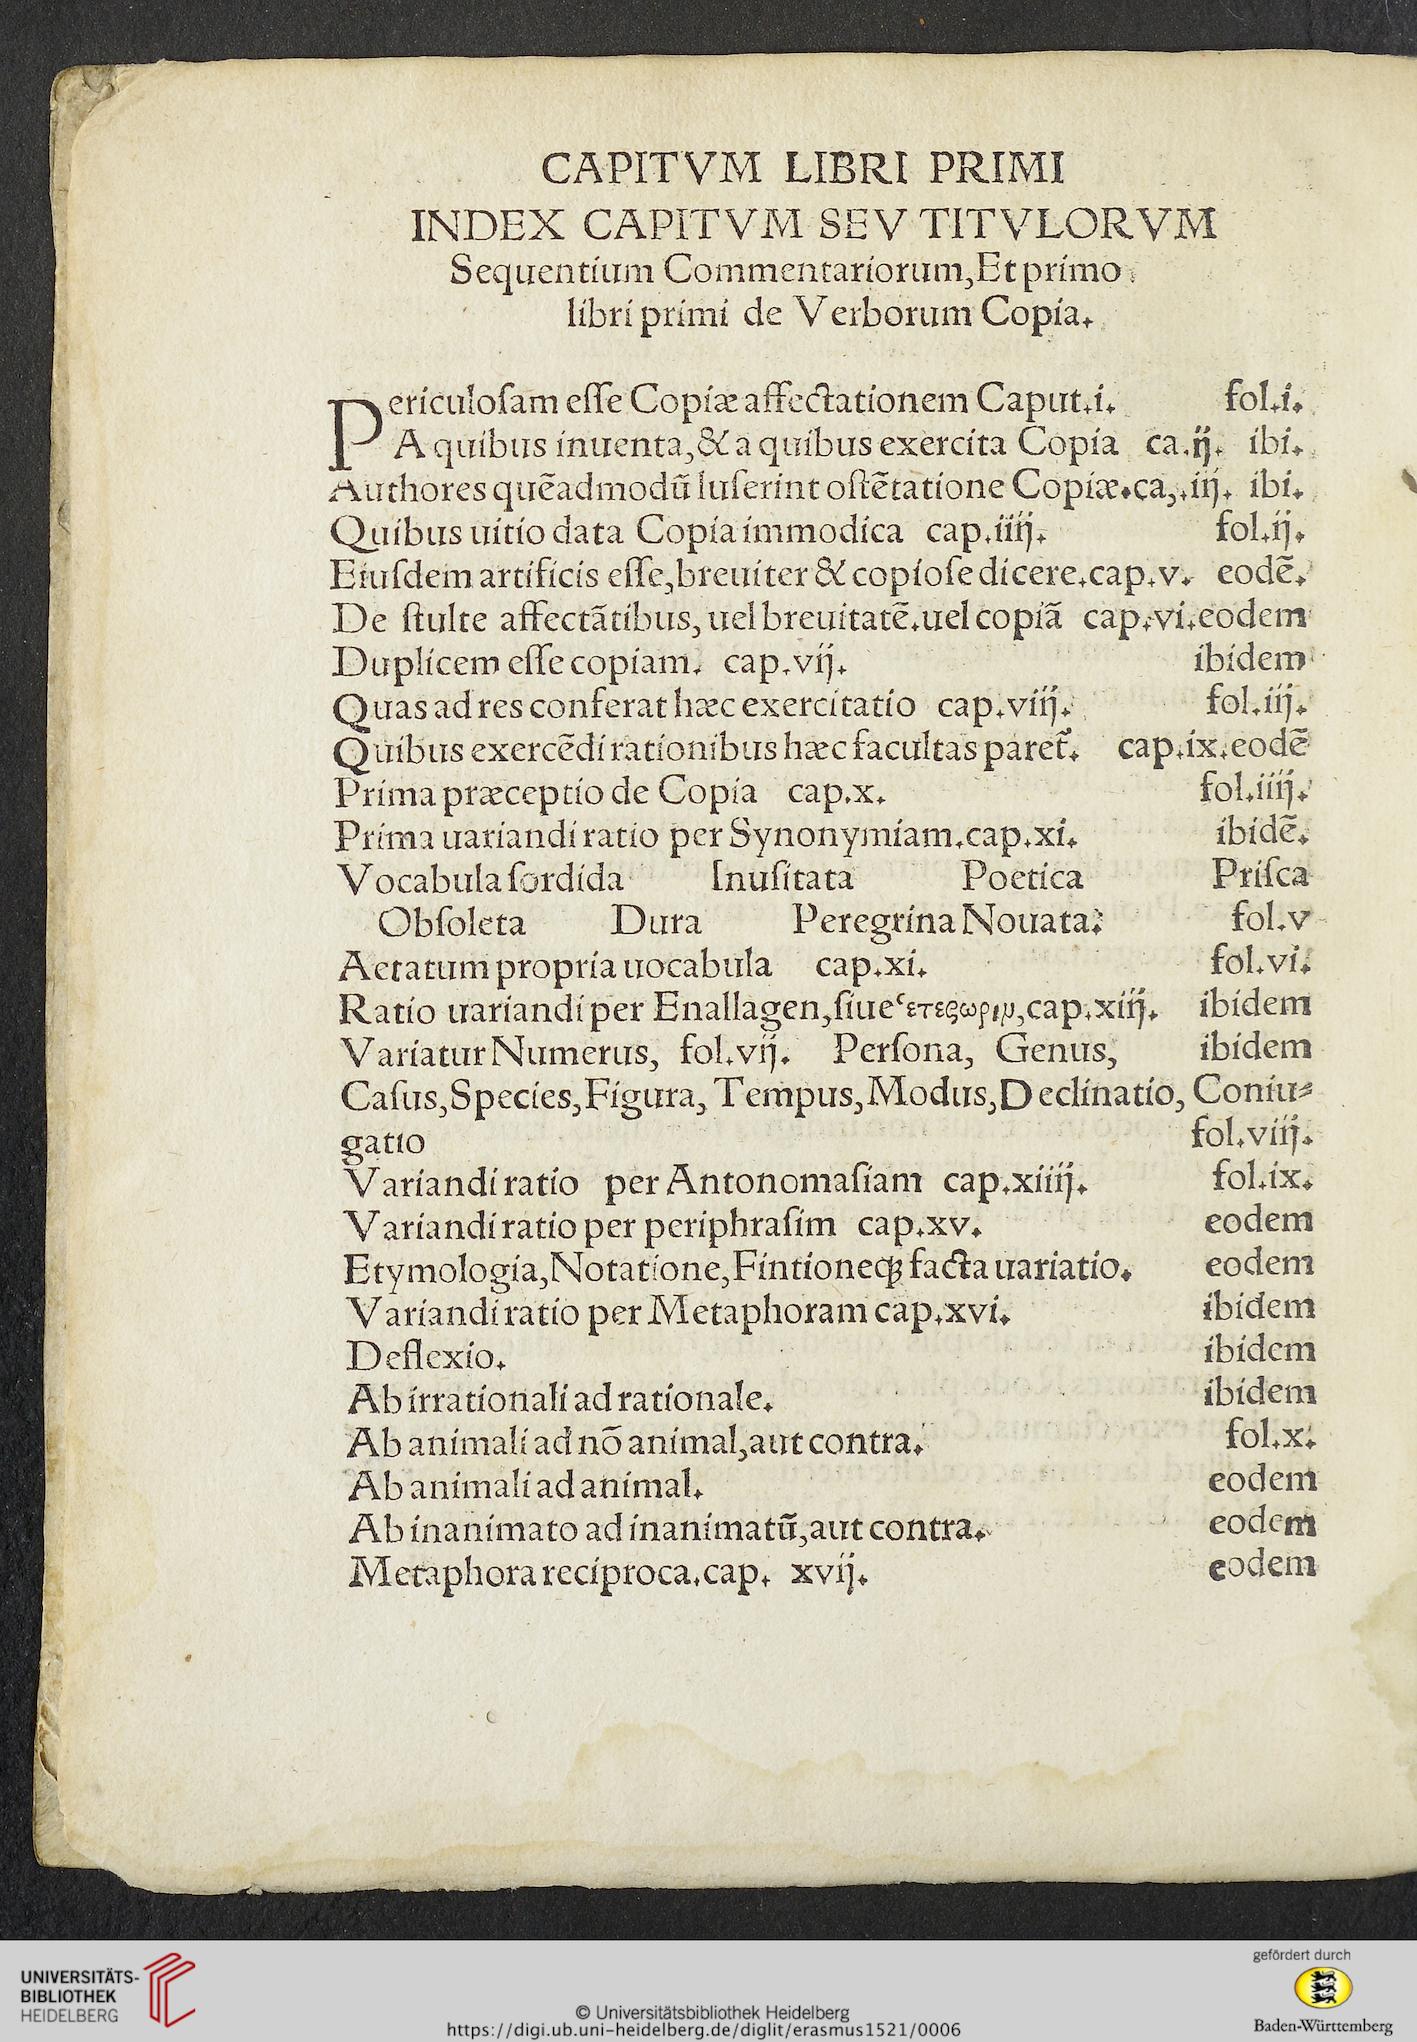 CAPITVM LIBRI PRIMI
INDEX CAPITVM SEV TITVLORVM
Sequentium Commentariorum,Et primo
libri primi de Verborum Copia.
Periculoſam eſſe Copiæ affectationem Caput.i. fol.i.
A quibus inuenta,& a quibus exercita Copia ca.ij. ibi.
Authores quẽadmodũ luſerint oſtẽtatione Copiæ.ca,.iij. ibi.
Quibus uitio data Copia immodica cap.iiij. fol.ij.
Eiuſdem artificis eſſe,breuiter & copioſe dicere.cap.v. eodẽ.
De ſtulte affectãtibus, uel breuitatẽ.uel copiã cap.vi.eodem
Duplicem eſſe copiam. cap.vij. ibidem
Quas ad res conferat hæc exercitatio cap.viij. fol.iij.
Quibus exercẽdi rationibus hæc facultas paret̃. cap.ix.eodẽ
Prima præceptio de Copia cap.x. fol.iiij.
Prima uariandi ratio per Synonymiam.cap.xi. ibidẽ.
Vocabula ſordida Inuſitata Poetica Priſca
Obſoleta Dura Peregrina Nouata: fol.v
Aetatum propria uocabula cap.xi. fol.vi.
Ratio uariandi per Enallagen,ſiue cap.xiij. ibidem
Variatur Numerus, fol.vij. Perſona, Genus, ibidem
Caſus,Species,Figura, Tempus,Modus,Declinatio, Coniu⸗
gatio fol.viij.
Variandi ratio per Antonomaſiam cap.xiiij. fol.ix.
Variandi ratio per periphraſim cap.xv. eodem
Etymologia,Notatione,Fintioneq; facta uariatio. eodem
Variandi ratio per Metaphoram cap.xvi. ibidem
Deflexio. ibidem
Ab irrationali ad rationale. ibidem
Ab animali ad nõ animal,aut contra. fol.x.
Ab animali ad animal. eodem
Ab inanimato ad inanimatũ,aut contra. eodem
Metaphora reciproca.cap. xvij. eodem
UNIVERSITÄTS-
BIBLIOTHEK
HEIDELBERG
© Universitätsbibliothek Heidelberg
https://digi.ub.uni-heidelberg.de/diglit/erasmus1521/0006
gefördert durch
Baden-Württemberg